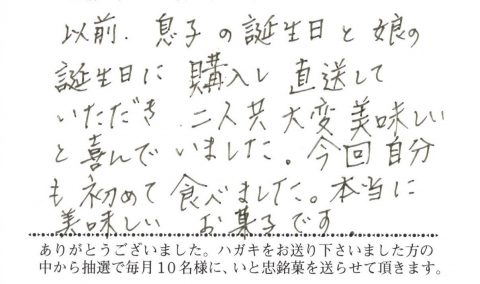 以前、息子の誕生日と娘の
誕生日に購入し直送して
いただき、二人共大変美味しい
と喜んでいました。今回自分
も初めて食べました。本当に
美味しいお菓子です。
ありがとうございました。ハガキをお送り下さいました方の
中から抽選で毎月10名様に、いと忠銘菓を送らせて頂きます。